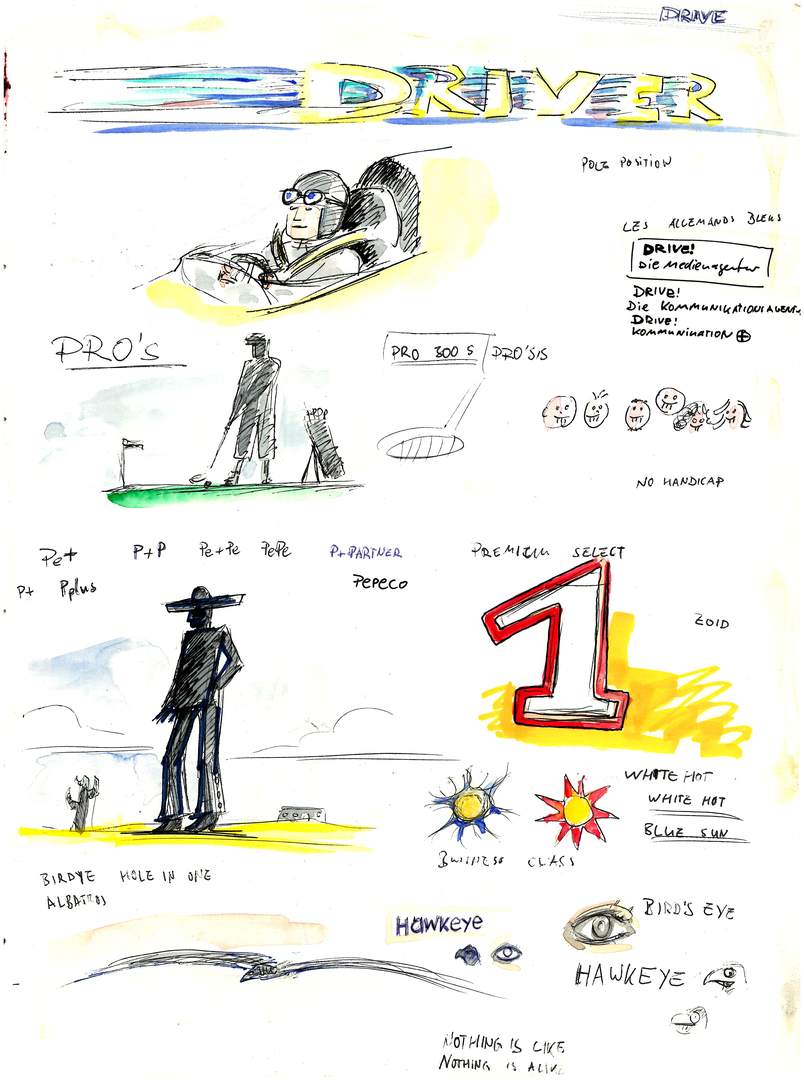 DRIVE
DRIVER
POLE POSITION
LES ALLEMANDS BLEUS
DRIVE!
Die Medienagentur
DRIVE!
Die KOMMUNIKATIONSAGENT
DRIVE!
KOMMUNIKATION
PRO's
PRO 300 S PRO'SIS
NO HANDICAP
Pe+ P+P Pe+Pe PePe P+PARTNER
P+ Pplus PePeCO
PREMIUM SELECT
1
ZOID
WHITE HOT
WHITE HOT
BLUE SUN
BUSINESS CLASS
BIRDYE HOLE IN ONE
ALBATROS
Hawkeye
BIRD'S EYE
HAWKEYE
NOTHING IS LIKE
NOTHING IS ALIVE